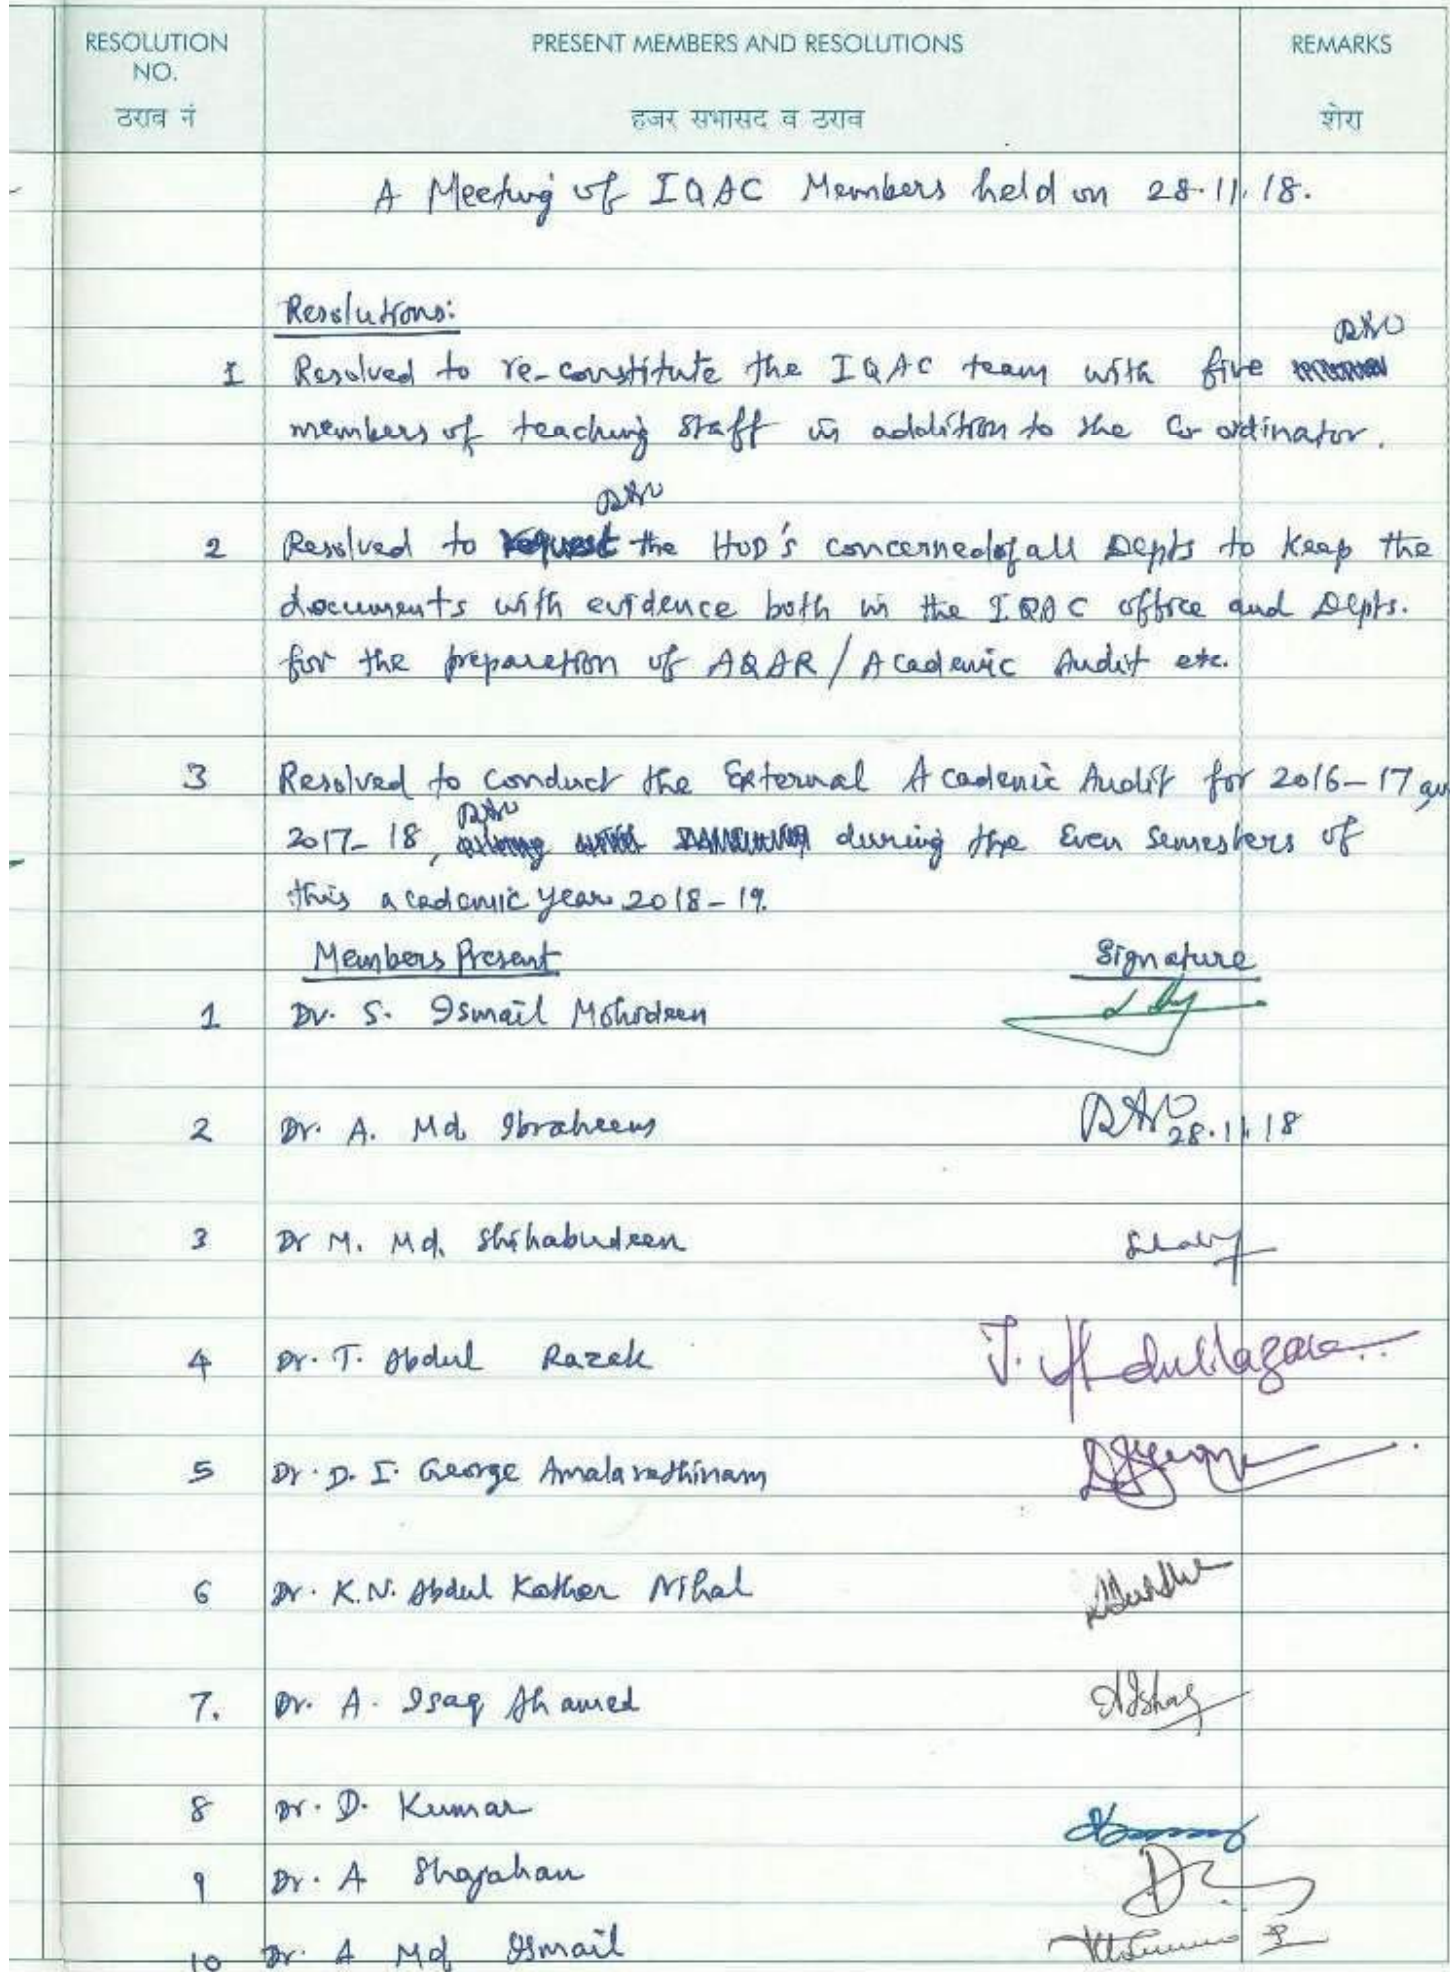 RESOLUTION NO. PRESENT MEMBERS AND RESOLUTIONS REMARKS
ठराव नं हजर सभासद व ठराव शेरा
A Meeting of IQAC Members held on 28.11.18.
Resolutions:
1 Resolved to re-constitute the IQAC team with five
members of teaching staff in addition to the Co-ordinator.
2 Resolved to request the HOD's concerned of all Depts to keep the
documents with evidence both in the IQAC office and Depts.
for the preparation of AQAR / Academic Audit etc.
3 Resolved to conduct the External Academic Audit for 2016-17
2017-18, during the Even Semesters of
this academic year 2018-19.
Members Present Signature
1 Dr. S. Ismail Mohideen
2 Dr. A. Md. Ibraheem 28.11.18
3 Dr M. Md. Shihabudeen
4 Dr. T. Abdul Razak T. Abdul Razak
5 Dr. D. I. George Amalarethinam
6 Dr. K.N. Abdul Kather Nihal
7. Dr. A. Isaq Ahamed
8 Dr. D. Kumar
9 Dr. A Shajahan
10 Dr. A Md Ismail